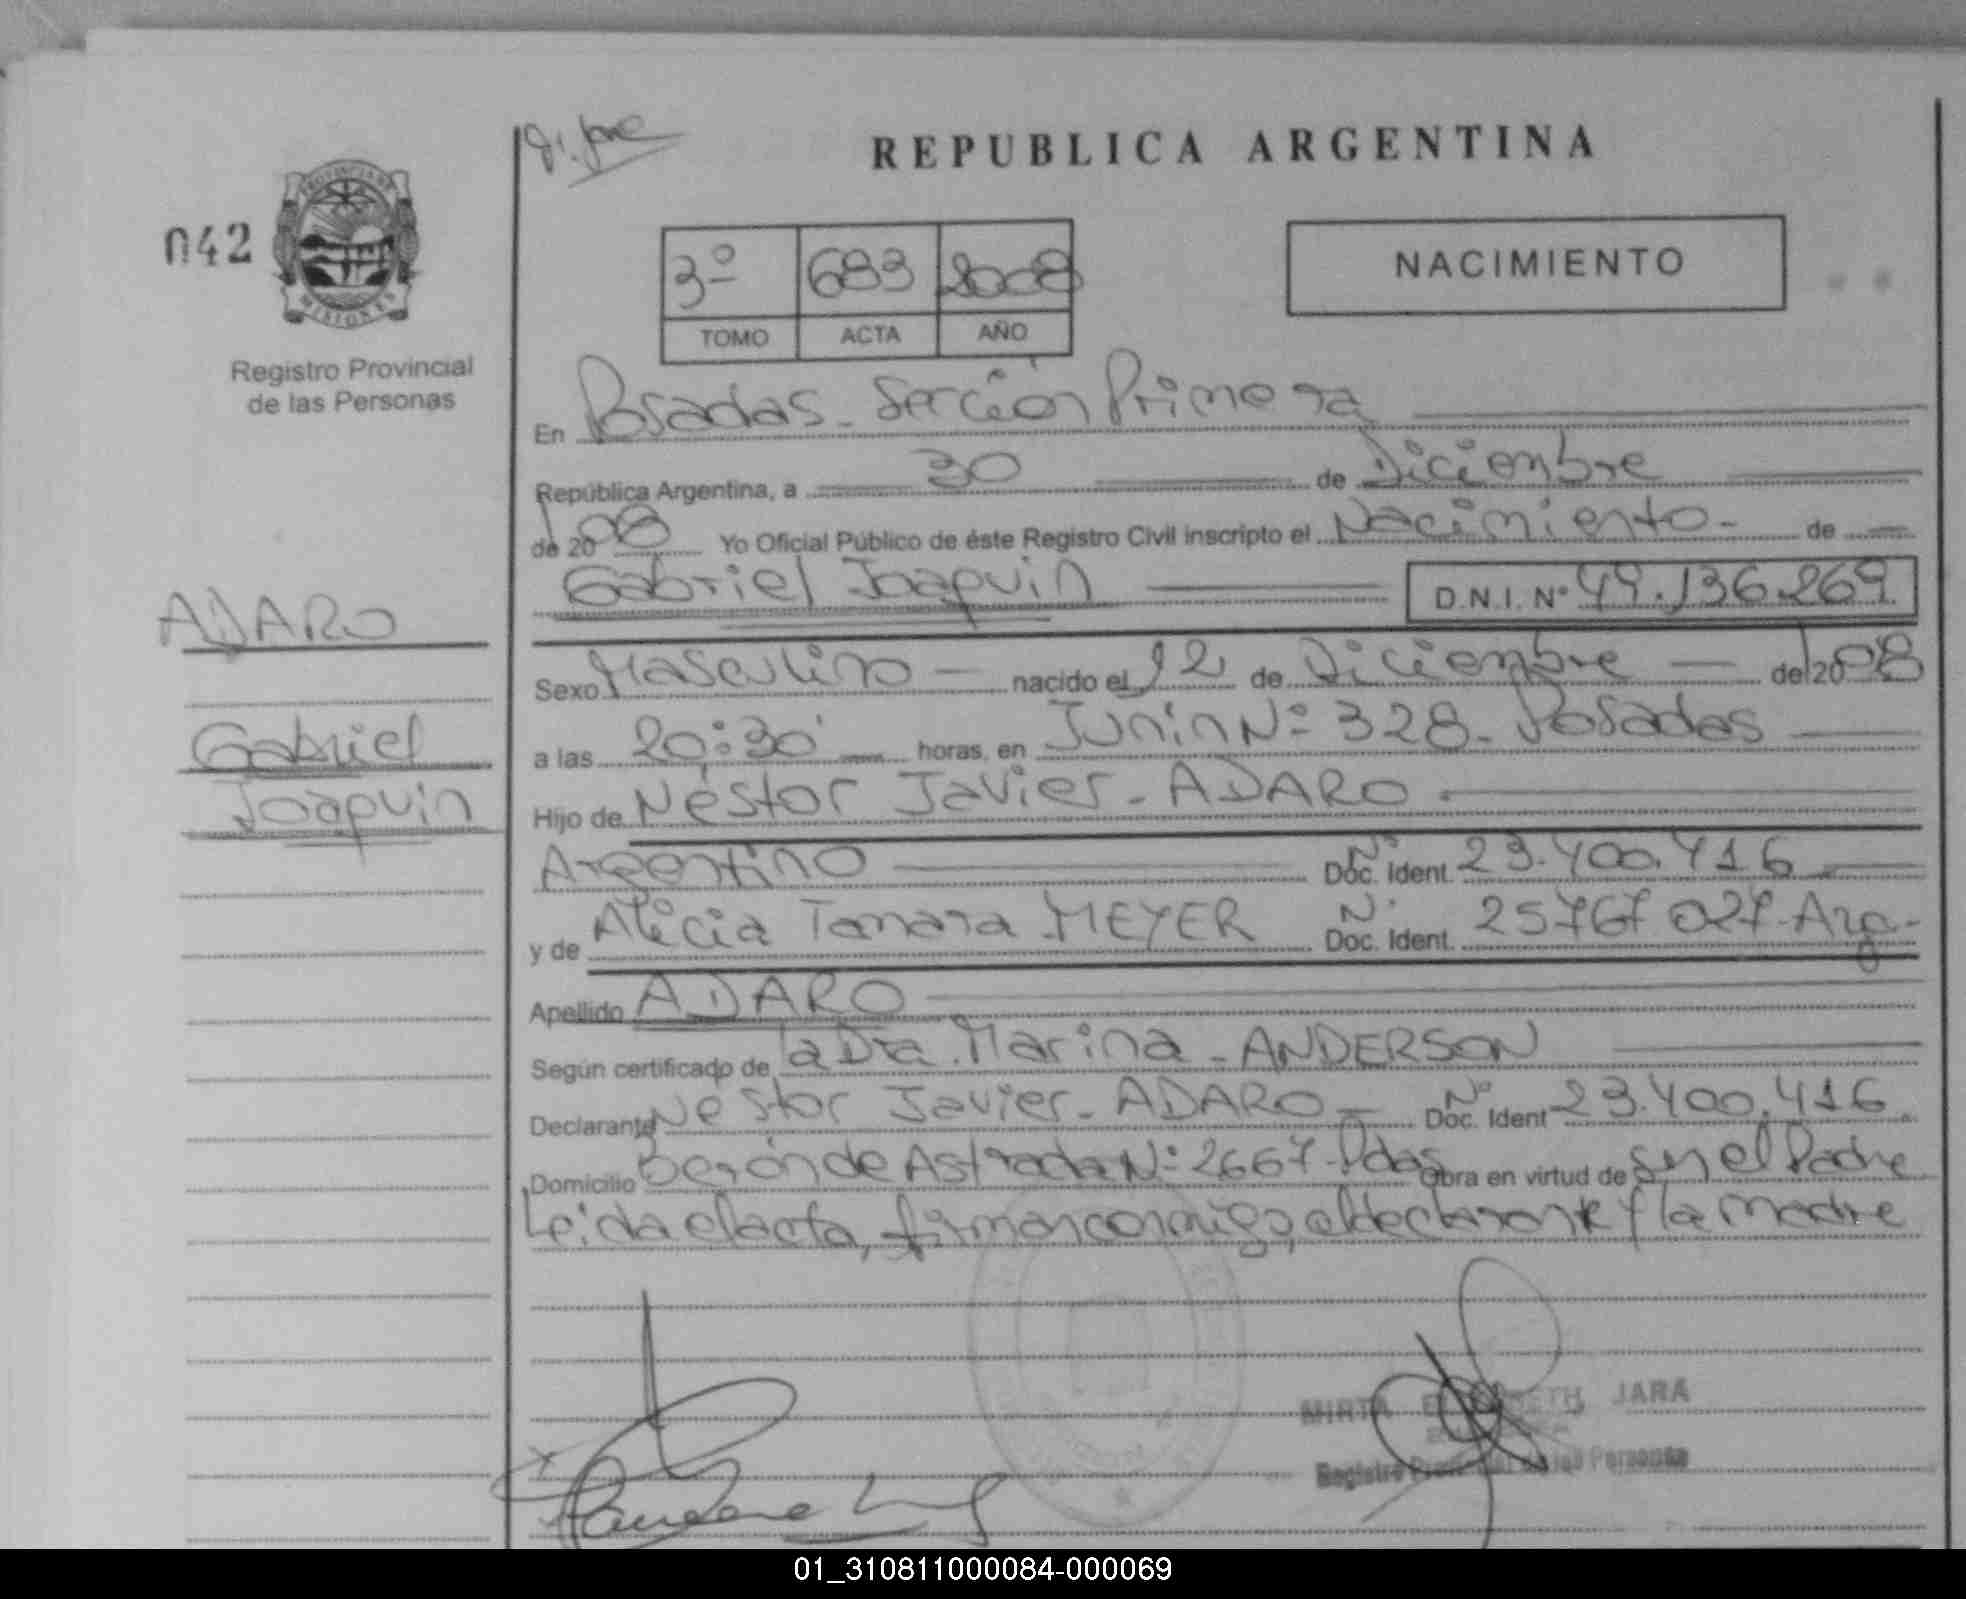 REPUBLICA ARGENTINA
042
PROVINCIA DE
MISIONES
Registro Provincial
de las Personas
3º 683 2008
TOMO ACTA AÑO
NACIMIENTO
En Posadas - Sección Primera
República Argentina, a 30 de Diciembre
de 2008 Yo Oficial Público de éste Registro Civil inscripto el Nacimiento - de
Gabriel Joaquin D.N.I. Nº 49.136.269
ADARO
Gabriel
Joaquin
Sexo Masculino - nacido el 12 de Diciembre - de 2008
a las 20:30' horas, en Junin Nº 328 - Posadas
Hijo de Néstor Javier - ADARO -
Argentino Nº Doc. Ident. 23.400.416
y de Alicia Tamara MEYER Nº Doc. Ident. 25767027 - Arg -
Apellido ADARO
Según certificado de la Dra. Marina - ANDERSON
Declarante Nestor Javier - ADARO - Nº Doc. Ident 23.400.416
Domicilio Berón de Astrada Nº 2667 - Pdas Obra en virtud de Ser el Padre
Leida el acta, firman conmigo, el declarante y la madre
MIRTA JARA
Registro de las Personas
01_310811000084-000069